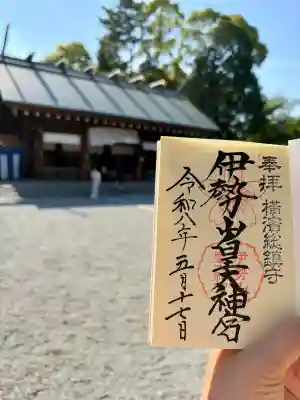 奉拝 横濱総鎮守
伊勢山皇大神宮
令和八年五月十七日